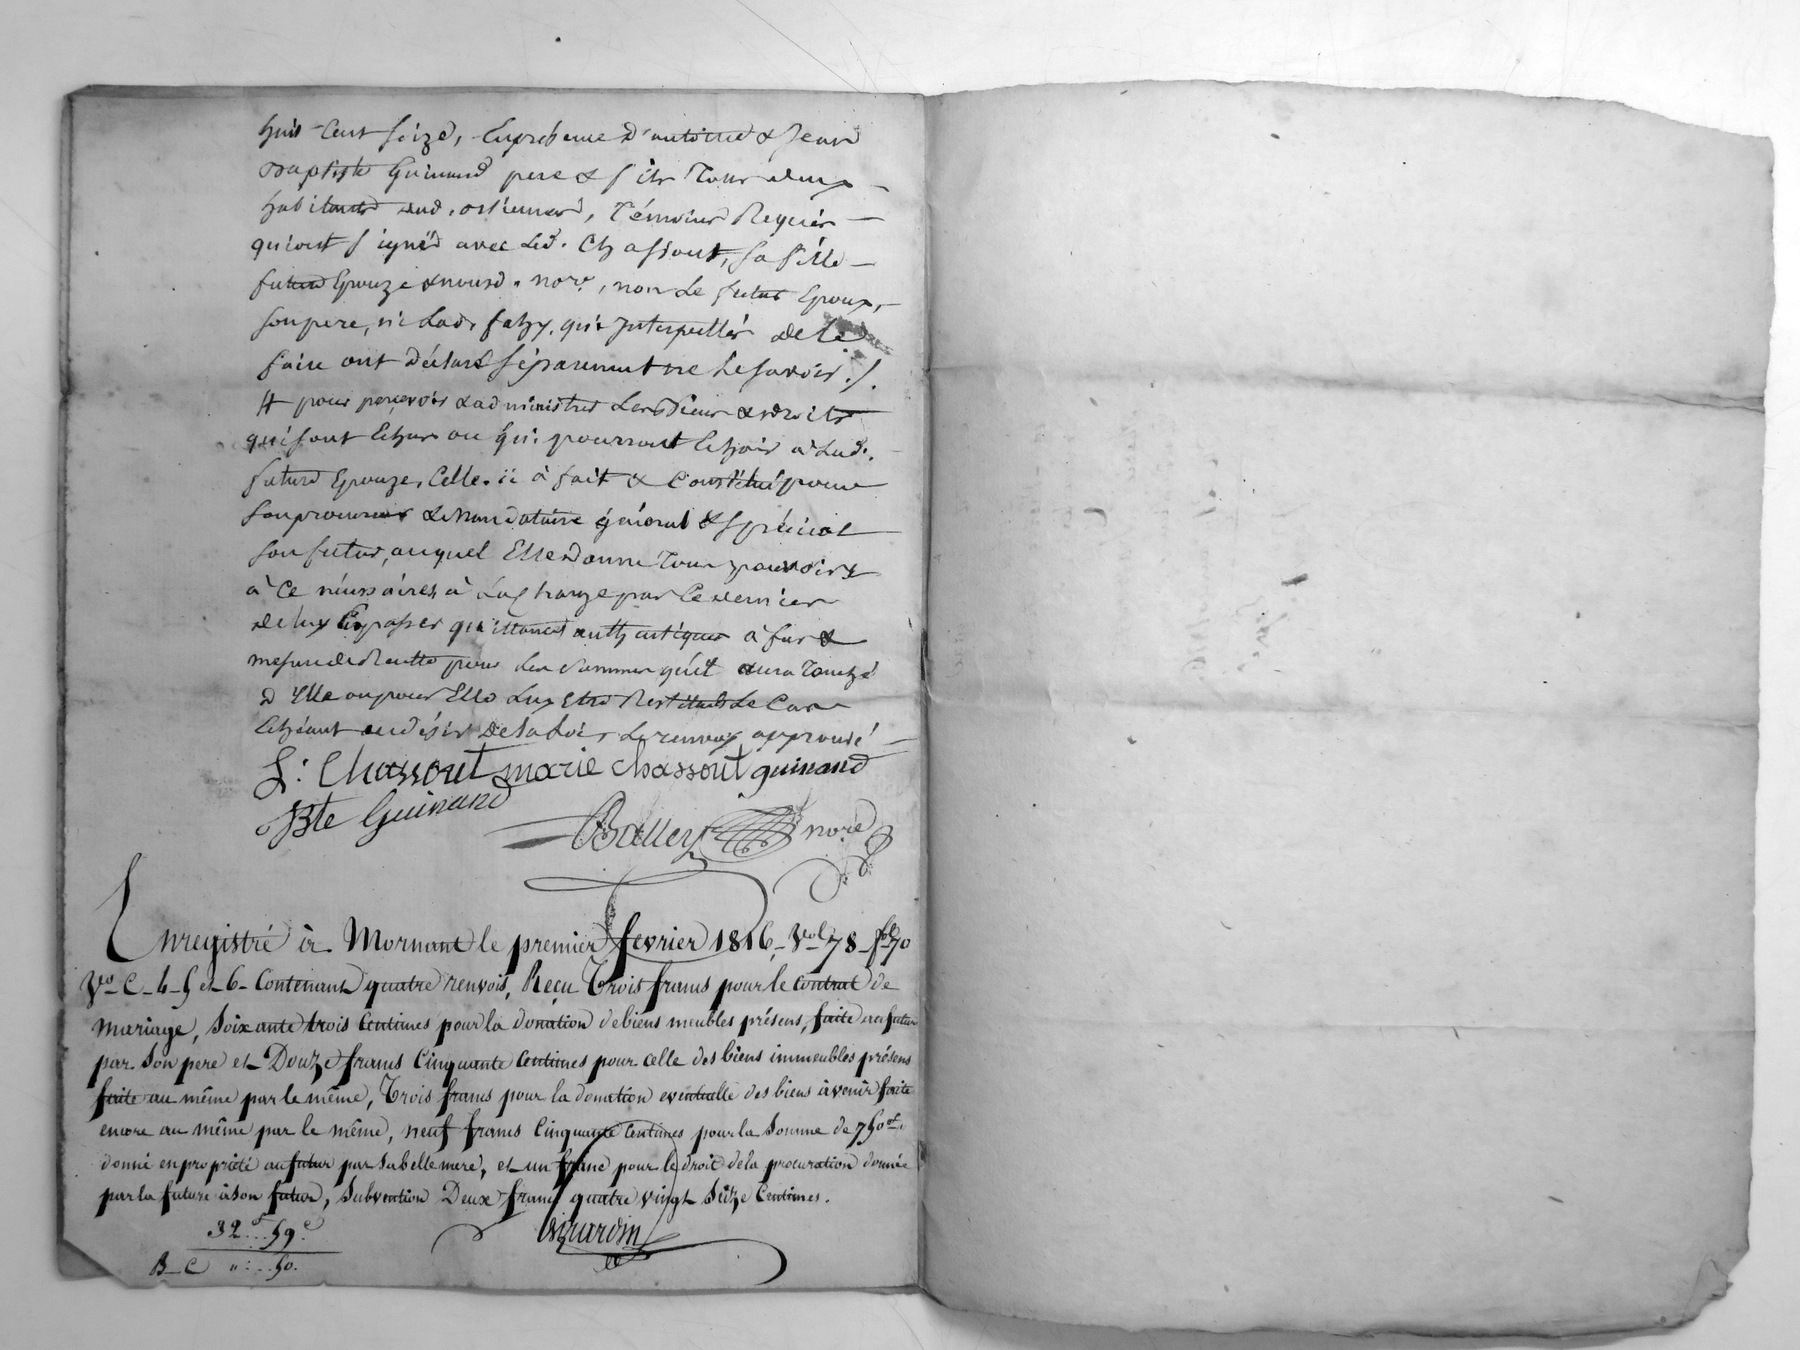 huit Cent seize, En présence d'antoine & Jean
Baptiste Guinand pere & fils Tous deux
habitants aud. , Témoins Requis
qui ont signé avec Led. Chassout, sa fille
future Epouze & nousd. nore, non Le futur Epoux,
son pere, ni Lad. fahy, qui Interpellés de le
faire ont déclaré séparément ne le savoir ./.
# pour perçevoir & administrer Les Biens & droits
qui sont Echus ou qui pourront Echoir à Lad.
future Epouze, Celle-ci à fait & Constitué pour
son procureur & Mandataire général & spécial
son futur, auquel Elle donne Tous pouvoirs
à Ce nécessaires, à La Charge par Ce dernier
de luy En passer quittances authentiques à fur &
mesure de Recette pour Les Sommes qu'il aura Touché
d'Elle ou pour Elle Luy Etre Restitués Le Cas
Echéant au désir de la Loi, Le renvoy approuvé
L: Chassout marie chassout guinand
JBte Guinand
Balley nore
Enregistré à Mornant le premier fevrier 1816, Vol. 78 fol. 70
Vo. C. 4. 5 et 6. Contenant quatre renvois, Reçu Trois francs pour le Contrat de
mariage, Soixante trois Centimes pour la donation de biens meubles présens, faite au futur
par Son pere et Douze francs Cinquante Centimes pour celle des biens immeubles présens
faite au même par le même, Trois francs pour la donation eventuelle des biens à venir faite
encore au même par le même, neuf francs Cinquante Centimes pour la Somme de 750f.
donné en propriété au futur par sa belle mere, et un franc pour le droit de la procuration donnée
par la future à son futur, Subvention Deux francs quatre vingt Seize Centimes.
32f...59c
Girardin
B_C "...50.